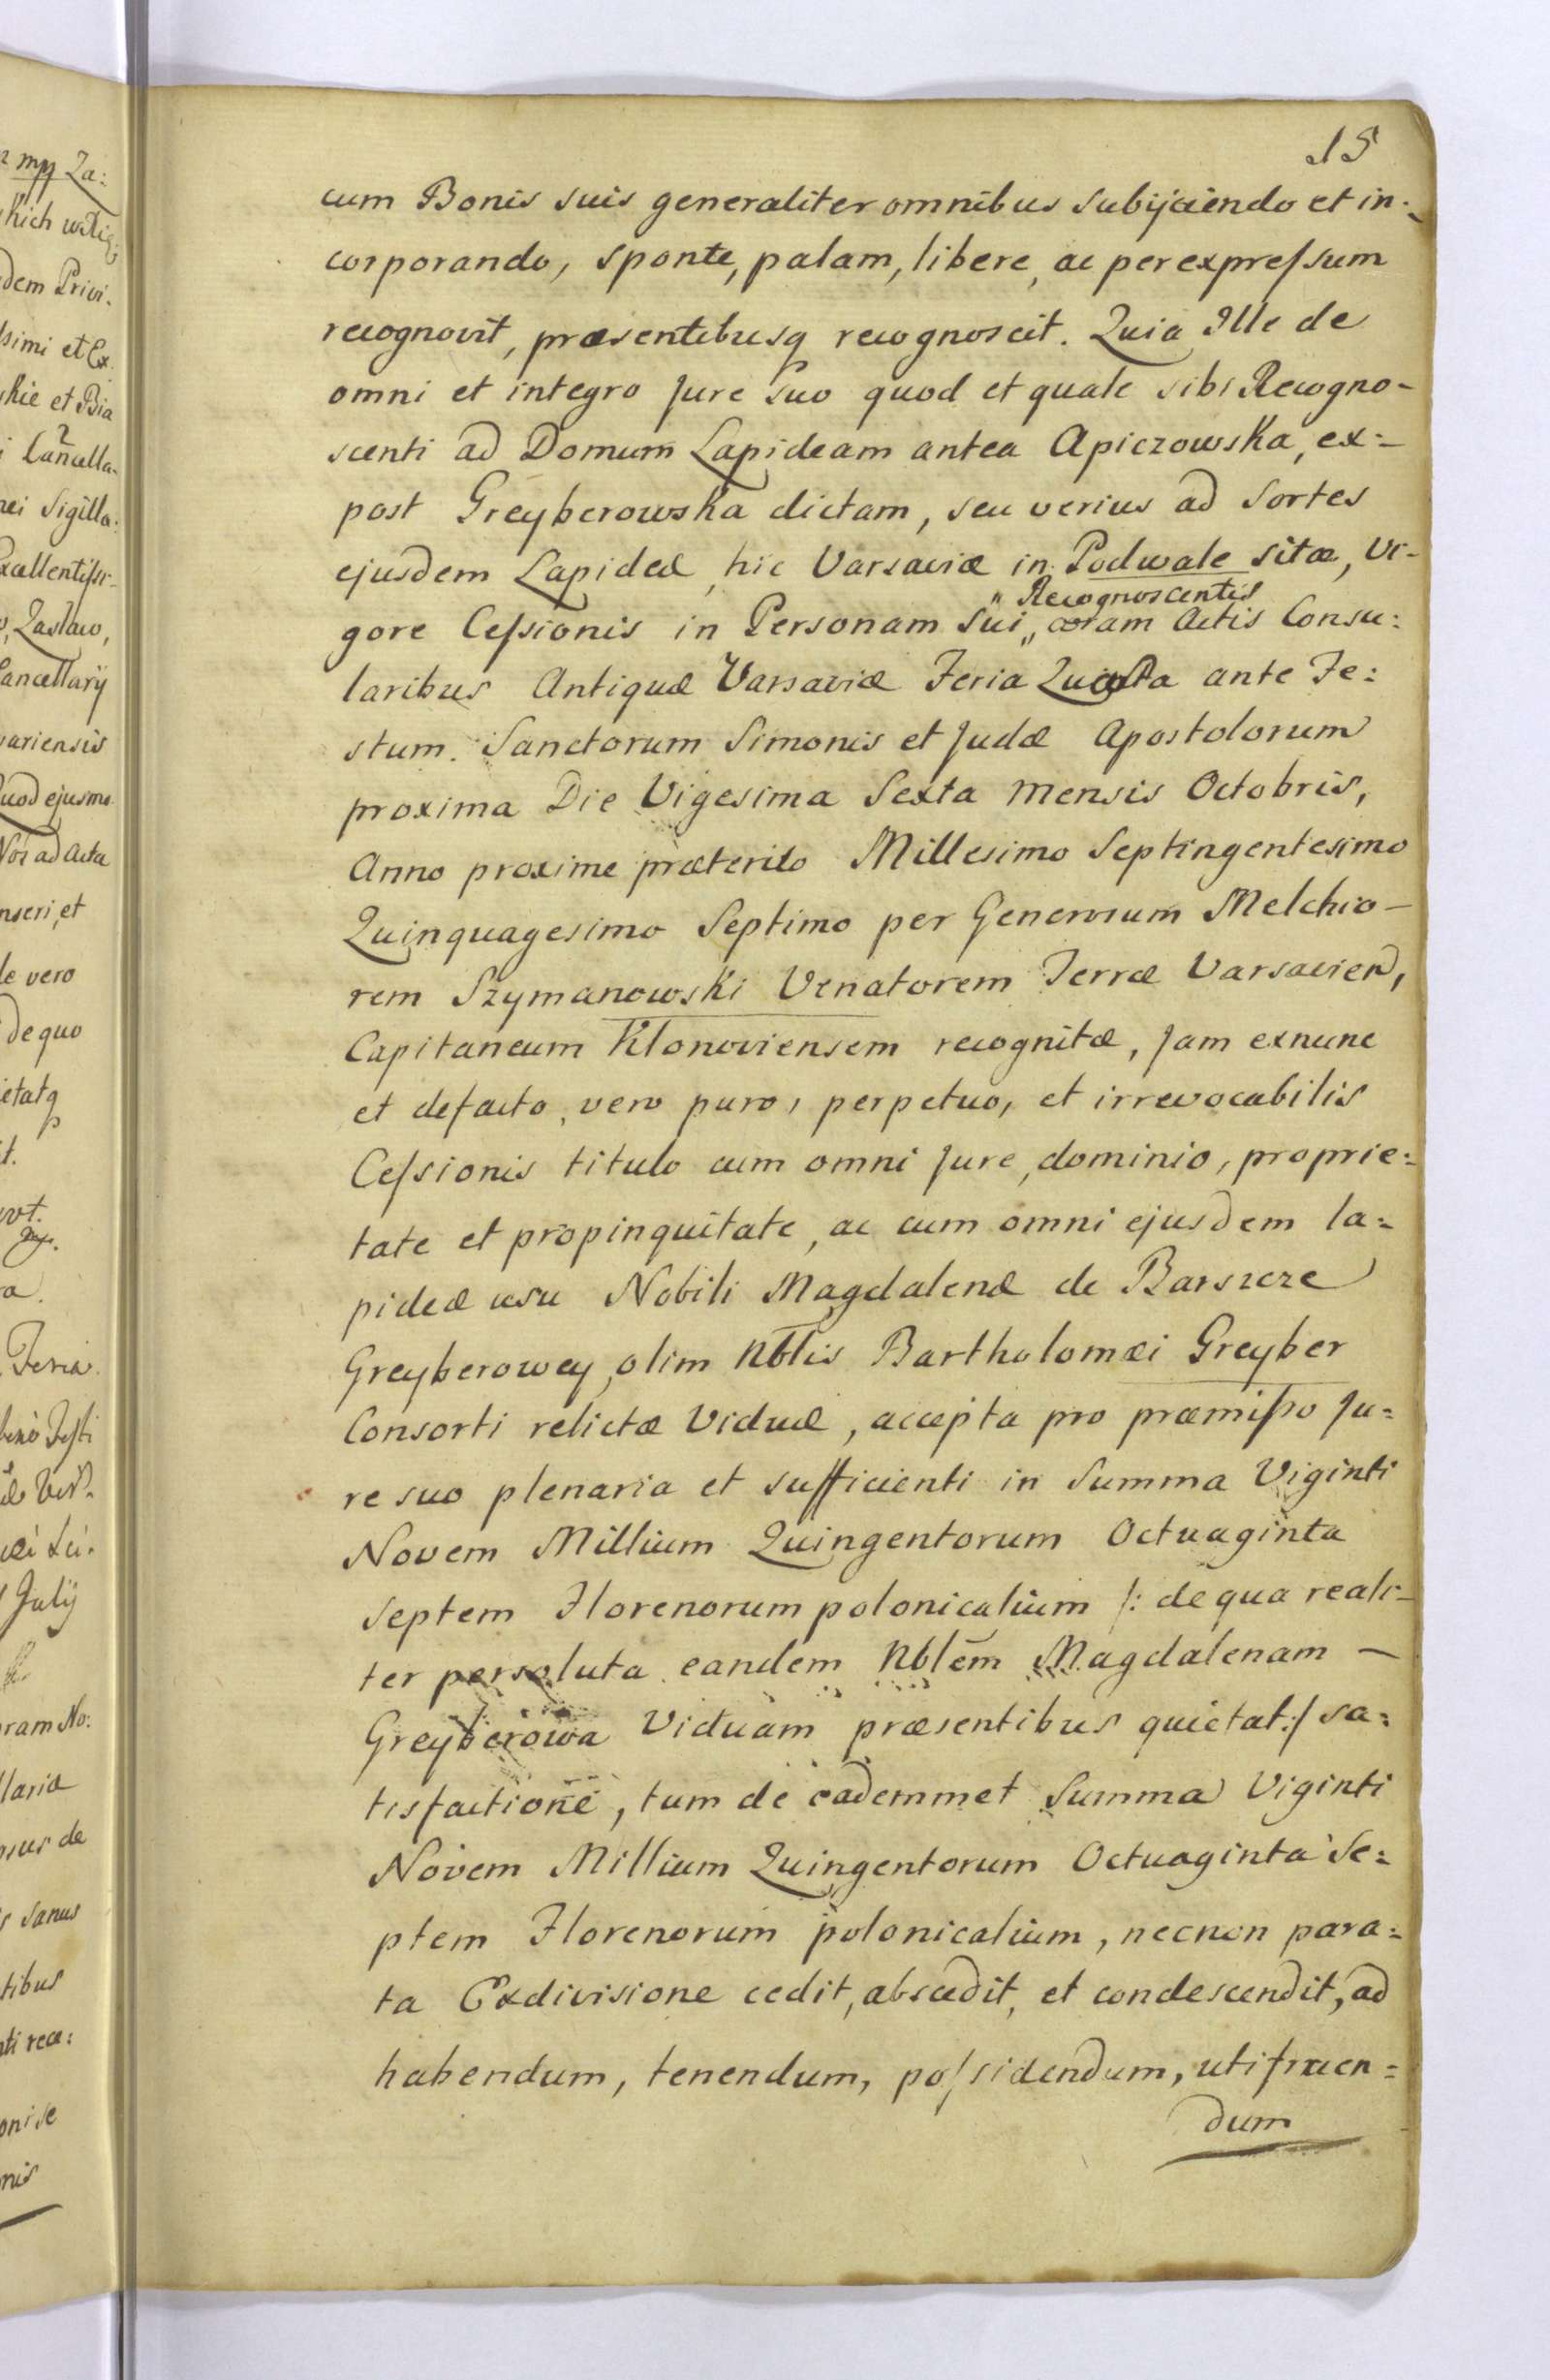 15
cum Bonis suis generaliter omnibus Subijciendo et in-
corporando, sponte, palam, libere, ac per expreſsum
recognovit, præsentibusq recognoscit. Quia Ille de
omni et integro Jure suo quod et quale sibi Recogno-
scenti ad Domum Lapideam antea Apiczowska, ex=
post Greyberowska dictam, seu verius ad Sortes
ejusdem Lapideæ, hic Varsaviæ in Podwale sitæ, Vi-
gore Ceſsionis in Personam Sui „ Recognoscentis coram Actis Consu:
laribus Antiquæ Varsaviæ Feria Quarta ante Fe:
stum Sanctorum Simonis et Judæ Apostolorum
proxima Die Vigesima Sexta Mensis Octobris,
Anno proxime præterito Millesimo Septingentesimo
Quinquagesimo Septimo per Generosum Melchio-
rem Szymanowski Venatorem Terræ Varsavien,
Capitaneum Klonoviensem recognitæ, Jam exnunc
et defacto, vero puro, perpetuo, et irrevocabilis
Ceſsionis titulo cum omni Jure, dominio, proprie:
tate et propinquitate, ac cum omni ejusdem la=
pideæ usu Nobili Magdalenæ de Barszcze
Greyberowey, olim Nblis Bartholomæi Greyber
Consorti relictæ Viduæ, accepta pro præmiſso Ju=
re suo plenaria et sufficienti in Summa Viginti
Novem Millium Quingentorum Octuaginta
Septem Florenorum polonicalium /: de qua reali-
ter persoluta eandem Nblem Magdalenam –
Greyberowa Viduam præsentibus quietat :/ sa=
tisfactione, tum de eademmet Summa Viginti
Novem Millium Quingentorum Octuaginta Se=
ptem Florenorum polonicalium, necnon para=
ta Exdivisione cedit, abscedit, et condescendit, ad
habendum, tenendum, poſsidendum, utifruen=
dum